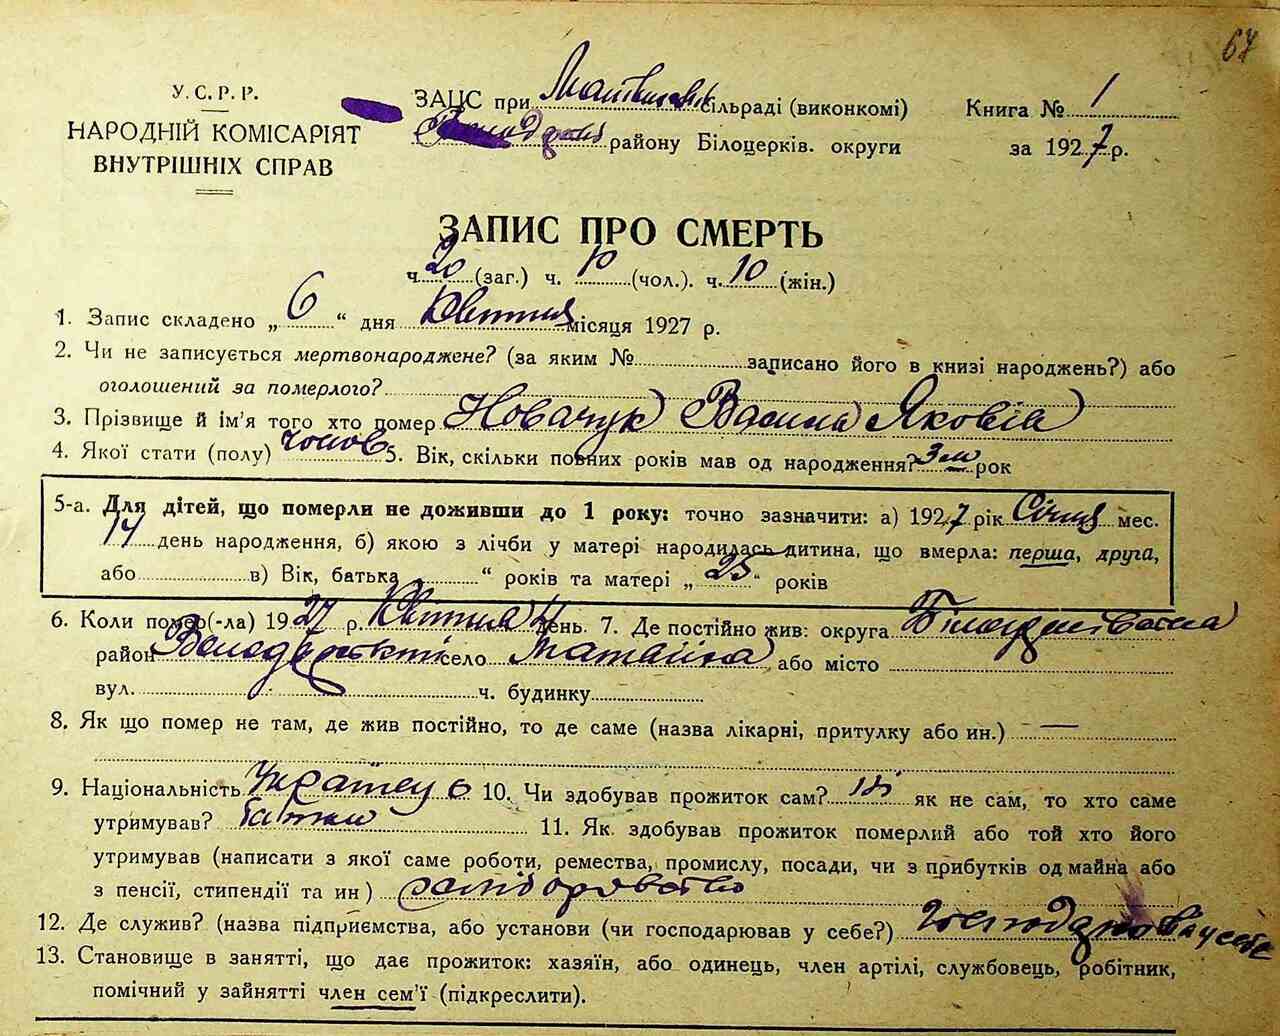 67
У.С.Р.Р.
НАРОДНІЙ КОМІСАРІЯТ
ВНУТРІШНІХ СПРАВ
ЗАЦС при сільраді (виконкомі)
району Білоцерків. округи
Книга № 1
за 1927 р.
ЗАПИС ПРО СМЕРТЬ
ч. 20 (заг.) ч. 10 (чол.). ч. 10 (жін.)
1. Запис складено „ 6 “ дня Квітня місяця 1927 р.
2. Чи не записується мертвонароджене? (за яким № записано його в книзі народжень?) або
оголошений за померлого?
3. Прізвище й ім'я того хто помер Новачук Василь Яковів
4. Якої стати (полу) чолов 5. Вік, скільки повних років мав од народження? 3 м рок
5-а. Для дітей, що померли не доживши до 1 року: точно зазначити: а) 1927 рік Січня мес.
14 день народження, б) якою з лічби у матері народилась дитина, що вмерла: перша, друга,
або в) Вік, батька „ “ років та матері „ 25 “ років
6. Коли помер(-ла) 1927 р. Квітня 4 день. 7. Де постійно жив: округа Білоцерківська
район Володарський село або місто
вул. ч. будинку
8. Як що помер не там, де жив постійно, то де саме (назва лікарні, притулку або ин.) —
9. Національність Українец 10. Чи здобував прожиток сам? ні як не сам, то хто саме
утримував? батьки 11. Як здобував прожиток померлий або той хто його
утримував (написати з якої саме роботи, ремества, промислу, посади, чи з прибутків од майна або
з пенсії, стипендії та ин)
12. Де служив? (назва підприємства, або установи (чи господарював у себе?) господарював у себе
13. Становище в занятті, що дає прожиток: хазяїн, або одинець, член артілі, службовець, робітник,
помічний у зайнятті член сем'ї (підкреслити).